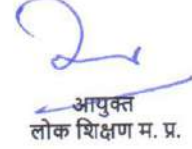 आयुक्त
लोक शिक्षण म. प्र.